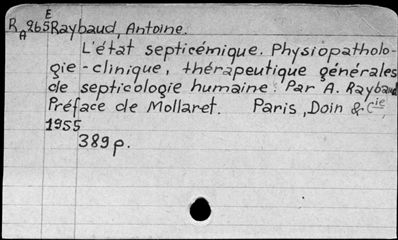 E
R 265 Raybaud, Antoine.
A
L'état septicémique. Physiopatholo-
gie-clinique, thérapeutique générales
de septicologie humaine. Par A. Raybaud
Préface de Mollaret. Paris, Doin & Cie,
1955
389p.